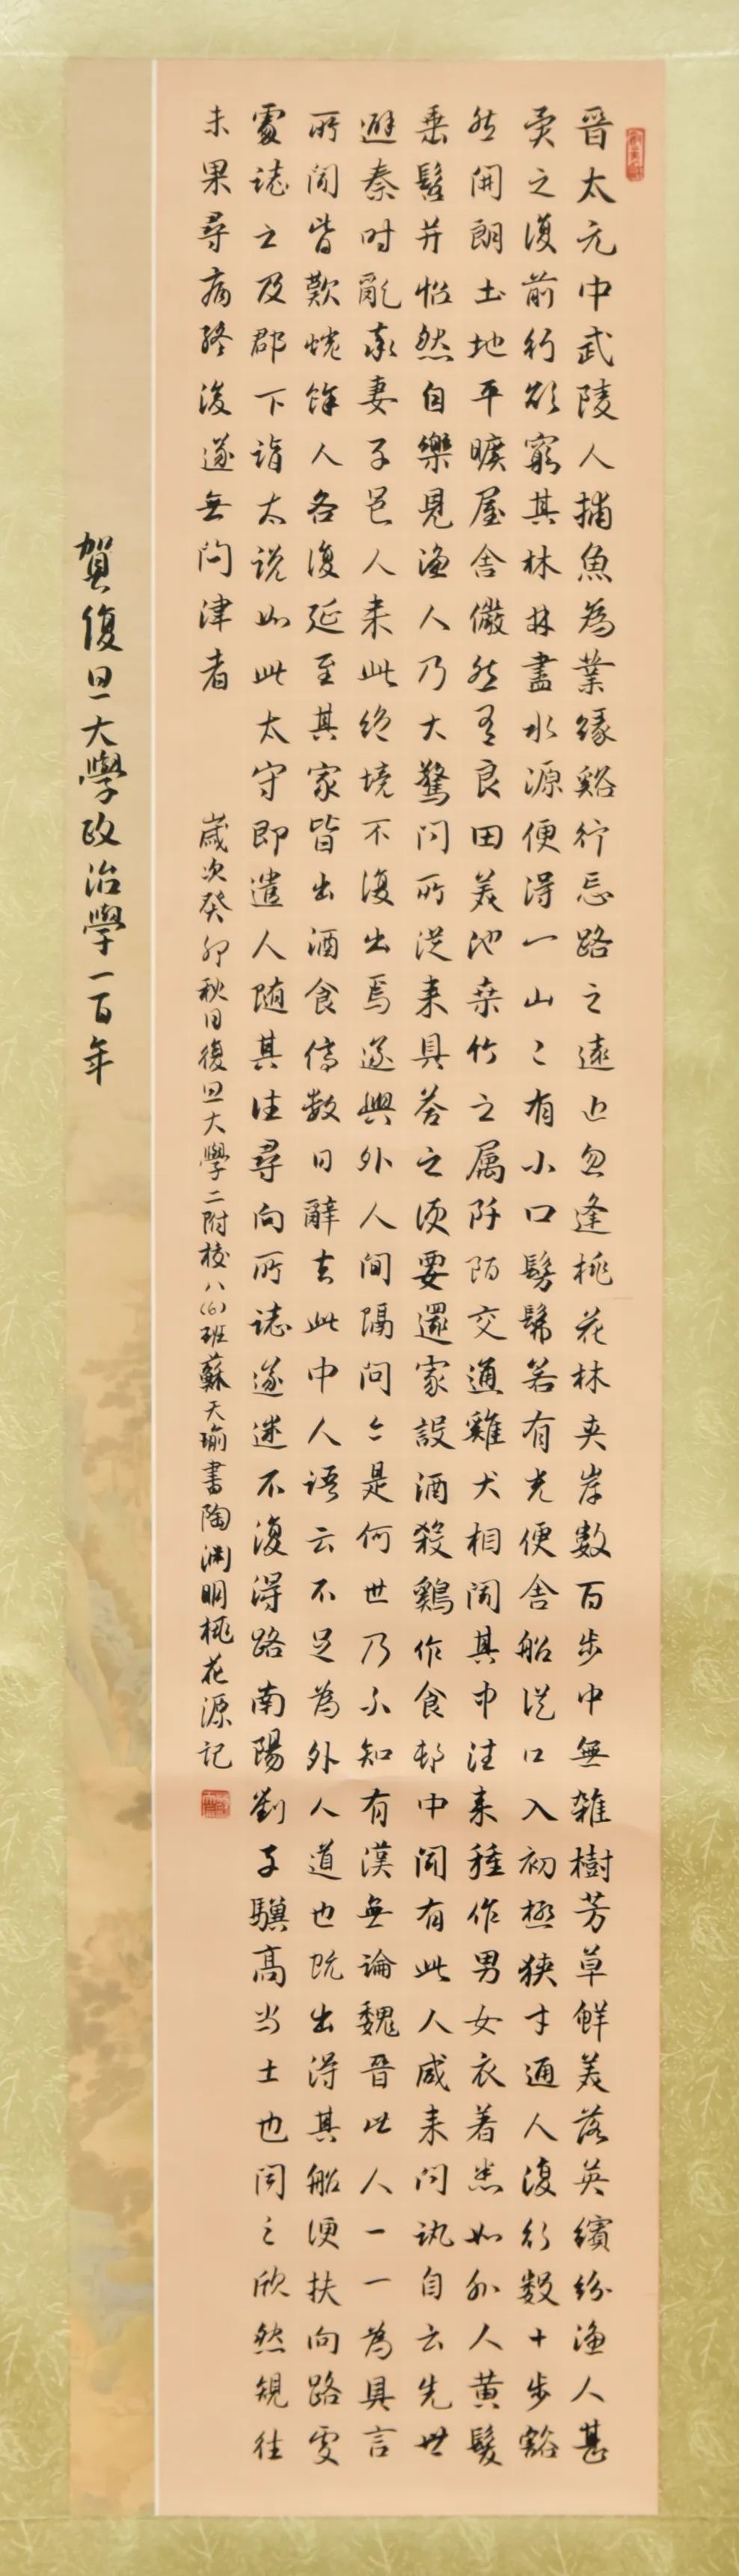 晋太元中武陵人捕魚為業緣谿行忘路之遠近忽逢桃花林夾岸數百步中無雜樹芳草鮮美落英繽紛漁人甚
異之復前行欲窮其林林盡水源便得一山〻有小口髣髴若有光便舍船從口入初極狹才通人復行數十步豁
然開朗土地平曠屋舍儼然有良田美池桑竹之属阡陌交通雞犬相聞其中往来種作男女衣著悉如外人黄髮
垂髫并怡然自樂見漁人乃大驚問所從来具答之便要還家設酒殺鷄作食邨中聞有此人咸来問訊自云先世
避秦时亂率妻子邑人来此絶境不復出焉遂與外人間隔問今是何世乃不知有漢無論魏晋此人一一為具言
所聞皆歎惋餘人各復延至其家皆出酒食停數日辭去此中人語云不足為外人道也既出得其船便扶向路處
處誌之及郡下詣太说如此太守即遣人随其往尋向所誌遂迷不復得路南陽劉子驥高尚士也聞之欣然規往
未果尋病終後遂無問津者 歲次癸卯秋日復旦大學二附校八(6)班蘇天瑜書陶渊明桃花源記
賀復旦大學政治學一百年